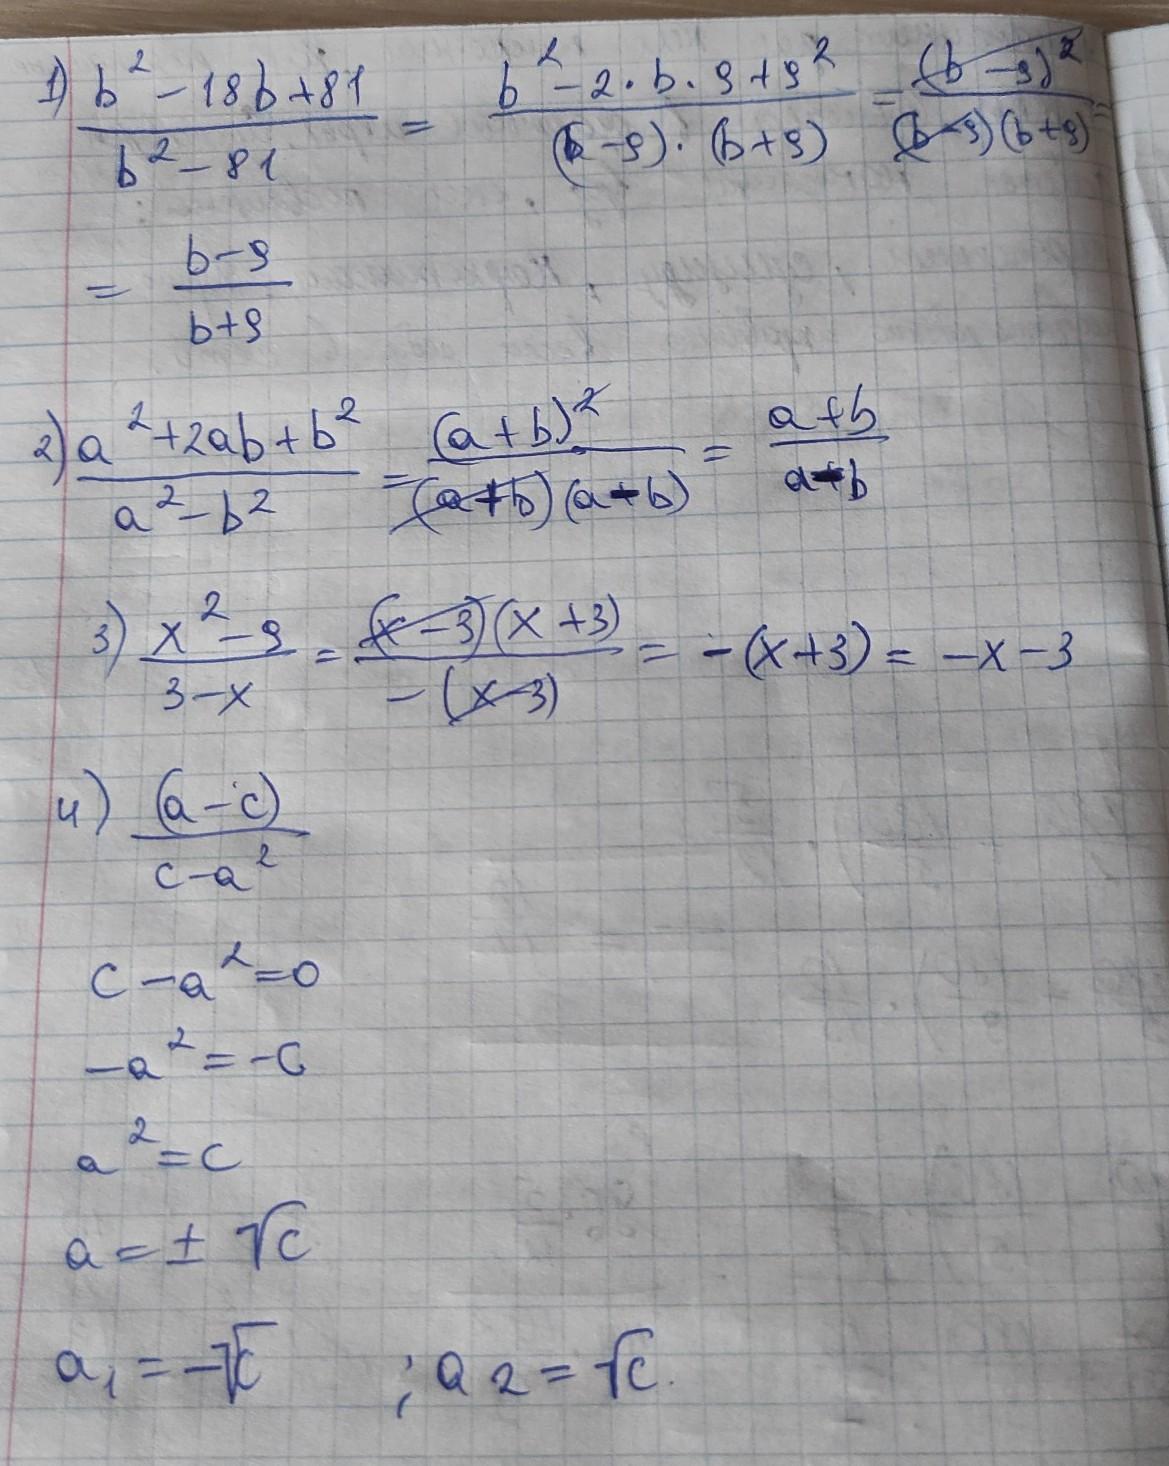 1) (b² - 18b + 81)/(b² - 81) = (b² - 2 · b · 9 + 9²)/((b - 9) · (b + 9)) = (b - 9)²/((b - 9)(b + 9)) =
= (b - 9)/(b + 9)
2) (a² + 2ab + b²)/(a² - b²) = (a + b)²/((a + b)(a - b)) = (a + b)/(a - b)
3) (x² - 9)/(3 - x) = ((x - 3)(x + 3))/(-(x - 3)) = -(x + 3) = -x - 3
4) (a - c)/(c - a²)
c - a² = 0
-a² = -c
a² = c
a = ± √c
a₁ = -√c ; a₂ = √c.